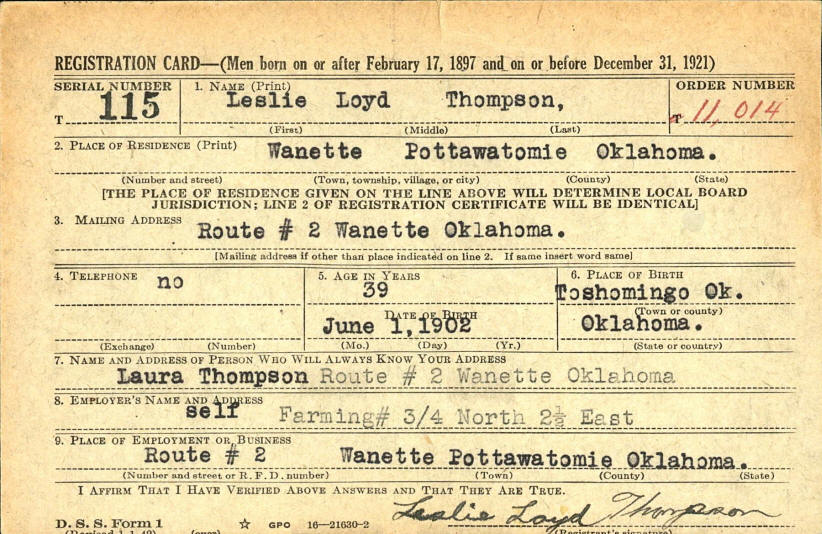 REGISTRATION CARD—(Men born on or after February 17, 1897 and on or before December 31, 1921)
SERIAL NUMBER
1. NAME (Print)
ORDER NUMBER
T 115
Leslie Loyd Thompson,
T 11,014
(First) (Middle) (Last)
2. PLACE OF RESIDENCE (Print)
Wanette Pottawatomie Oklahoma.
(Number and street) (Town, township, village, or city) (County) (State)
[THE PLACE OF RESIDENCE GIVEN ON THE LINE ABOVE WILL DETERMINE LOCAL BOARD
JURISDICTION; LINE 2 OF REGISTRATION CERTIFICATE WILL BE IDENTICAL]
3. MAILING ADDRESS
Route # 2 Wanette Oklahoma.
[Mailing address if other than place indicated on line 2. If same insert word same]
4. TELEPHONE
no
(Exchange) (Number)
5. AGE IN YEARS
39
DATE OF BIRTH
June 1,1902
(Mo.) (Day) (Yr.)
6. PLACE OF BIRTH
Toshomingo Ok.
(Town or county)
Oklahoma.
(State or country)
7. NAME AND ADDRESS OF PERSON WHO WILL ALWAYS KNOW YOUR ADDRESS
Laura Thompson Route # 2 Wanette Oklahoma
8. EMPLOYER'S NAME AND ADDRESS
self Farming# 3/4 North 2½ East
9. PLACE OF EMPLOYMENT OR BUSINESS
Route # 2 Wanette Pottawatomie Oklahoma.
(Number and street or R. F. D. number) (Town) (County) (State)
I AFFIRM THAT I HAVE VERIFIED ABOVE ANSWERS AND THAT THEY ARE TRUE.
Leslie Loyd Thompson
D. S. S. Form 1 ☆ GPO 16—21630-2
(Revised 1-1-42) (over) (Registrant's signature)